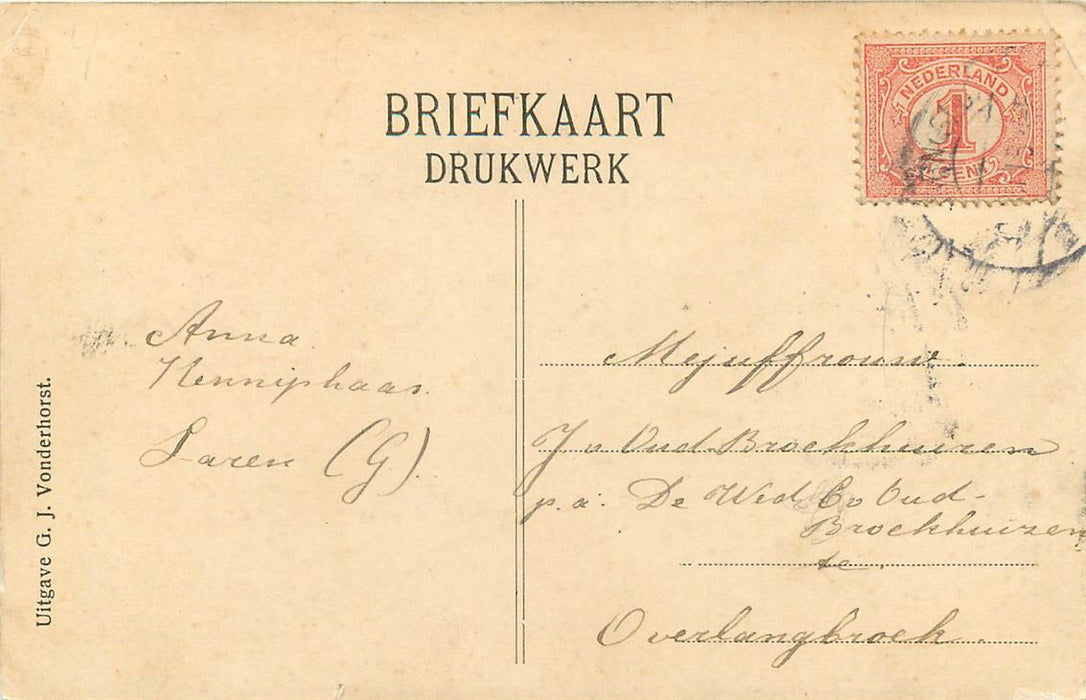 BRIEFKAART
DRUKWERK
NEDERLAND
1
Uitgave G. J. Vonderhorst.
Anna
Henniphaas.
Laren (G.)
Mejuffrouw.
J v Oud Broekhuizen
p.a. De Wed. Ev Oud-
Broekhuizen
te.
Overlangbroek.